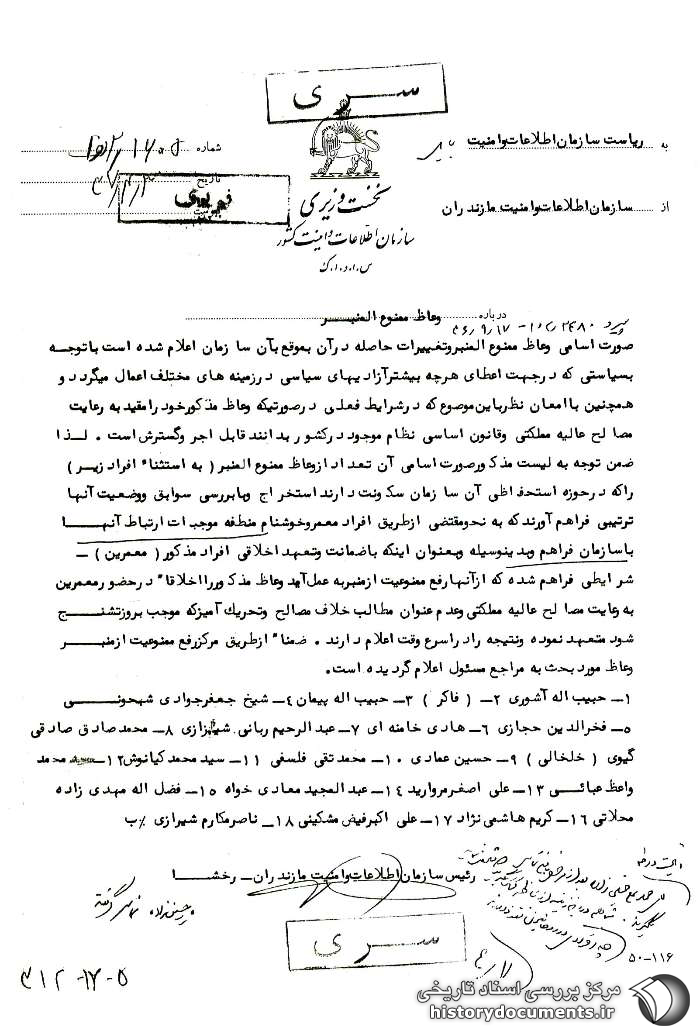 سـری
به ریاست سازمان اطلاعات وامنیت
شماره
تاریخ
از سازمان اطلاعات وامنیت مازندران
نخست وزیری
سازمان اطلاعات و امنیت کشور
س.ا.و.ا.ک
درباره وعاظ ممنوع المنبـــر
صورت اسامی وعاظ ممنوع المنبر وتغییرات حاصله درآن بموقع بآن سازمان اعلام شده است باتوجه
بسیاستی که درجهت اعطای هرچه بیشترآزادیهای سیاسی درزمینه های مختلف اعمال میگردد و
همچنین باامعان نظرباین موضوع که درشرایط فعلی درصورتیکه وعاظ مذکورخود رامقید به رعایت
مصالح عالیه مملکتی وقانون اساسی نظام موجود درکشور بدانند قابل اجر وگسترش است . لــذا
ضمن توجه به لیست مذکورصورت اسامی آن تعداد ازوعاظ ممنوع المنبر ( به استثناء افراد زیـر )
راکه درحوزه استحفاظی آن سازمان سکونت دارند استخراج وبابررسی سوابق ووضعیت آنها
ترتیبی فراهم آورندکه به نحومقتضی ازطریق افراد معمروخوشنام منطقه موجبات ارتباط آنهــا
باسازمان فراهم وبدینوسیله وبعنوان اینکه باضمانت وتعهد اخلاقی افراد مذکور ( معمرین ) ــ
شرایطی فراهم شده که ازآنها رفع ممنوعیت ازمنبربه عمل آید وعاظ مذکوررااخلاقا" درحضورمعمرین
به رعایت مصالح عالیه مملکتی وعدم عنوان مطالب خلاف مصالح وتحریک آمیزکه موجب بروزتشنـــج
شود متعهد نموده ونتیجه رادراسرع وقت اعلام دارند . ضمنا" ازطریق مرکز رفع ممنوعیت ازمنبـــر
وعاظ موردبحث به مراجع مسئول اعلام گردیده است.
۱ــ حبیب اله آشوری ۲ــ ( فاکر ) ۳ــ حبیب اله پیمان ۴ــ شیخ جعفرجوادی شجونــی
۵ــ فخرالدین حجازی ۶ــ هادی خامنه ای ۷ــ عبدالرحیم ربانی شیرازی ۸ــ محمدصادق صادقی
گیوی ( خلخالی ) ۹ــ حسین عمادی ۱۰ــ محمدتقی فلسفی ۱۱ــ سیدمحمدکیانوش ۱۲ــ سیدمحمد
واعظ عبائــی ۱۳ــ علی اصغرمروارید ۱۴ــ عبدالمجید معادی خواه ۱۵ــ فضل اله مهدی زاده
محلاتی ۱۶ــ کریم هاشمی نژاد ۱۷ــ علی اکبرفیض مشکینی ۱۸ــ ناصرمکارم شیرازی /ب
رئیس سازمان اطلاعات وامنیت مازندران ــ رخشــا
۵۰-۱۱۶
سـری
۳۱۲-۱۷-۵
مرکز بررسی اسناد تاریخی
historydocuments.ir